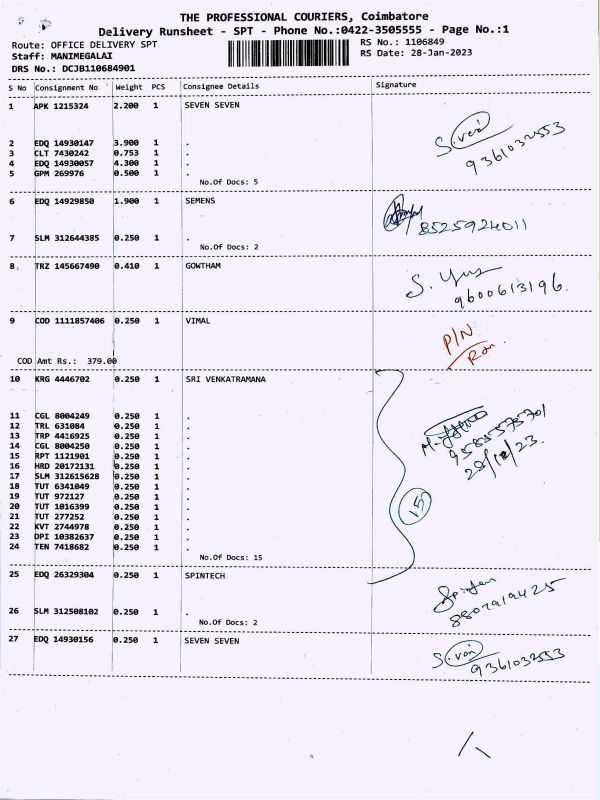 THE PROFESSIONAL COURIERS, Coimbatore
Delivery Runsheet - SPT - Phone No.:0422-3505555 - Page No.:1
Route: OFFICE DELIVERY SPT
RS No.: 1106849
Staff: MANIMEGALAI
RS Date: 28-Jan-2023
DRS No.: DCJB110684901
S No Consignment No Weight PCS Consignee Details Signature
1 APK 1215324 2.200 1 SEVEN SEVEN
2 EDQ 14930147 3.900 1 .
3 CLT 7430242 0.753 1 .
4 EDQ 14930057 4.300 1 .
5 GPM 269976 0.500 1 .
No.Of Docs: 5
9361032553
6 EDQ 14929850 1.900 1 SEMENS
8525924011
7 SLM 312644385 0.250 1 .
No.Of Docs: 2
8 TRZ 145667490 0.410 1 GOWTHAM
9600613196.
9 COD 1111857406 0.250 1 VIMAL
P/N
COD Amt Rs.: 379.00
10 KRG 4446702 0.250 1 SRI VENKATRAMANA
11 CGL 8004249 0.250 1 .
12 TRL 631084 0.250 1 .
13 TRP 4416925 0.250 1 .
14 CGL 8004250 0.250 1 .
15 RPT 1121901 0.250 1 .
16 HRD 20172131 0.250 1 .
17 SLM 312615628 0.250 1 .
18 TUT 6341049 0.250 1 .
19 TUT 972127 0.250 1 .
20 TUT 1016399 0.250 1 .
21 TUT 277252 0.250 1 .
22 KVT 2744978 0.250 1 .
23 DPI 10382637 0.250 1 .
24 TEN 7418682 0.250 1 .
No.Of Docs: 15
15
25 EDQ 26329304 0.250 1 SPINTECH
26 SLM 312508102 0.250 1 .
No.Of Docs: 2
27 EDQ 14930156 0.250 1 SEVEN SEVEN
9361032553